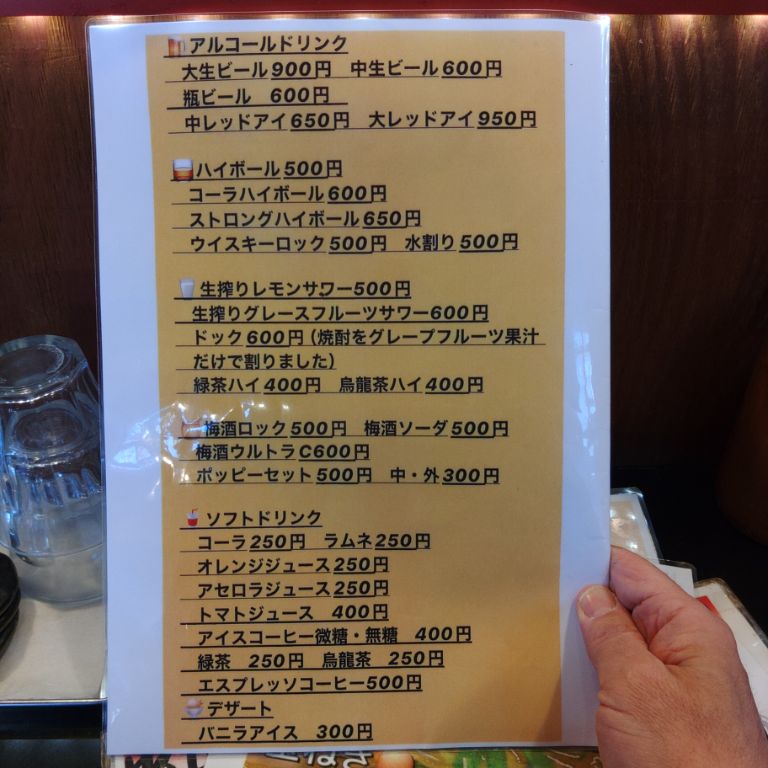 アルコールドリンク
大生ビール900円　中生ビール600円
瓶ビール　600円
中レッドアイ650円　大レッドアイ950円
ハイボール500円
コーラハイボール600円
ストロングハイボール650円
ウイスキーロック500円　水割り500円
生搾りレモンサワー500円
生搾りグレースフルーツサワー600円
ドック600円（焼酎をグレープフルーツ果汁
だけで割りました）
緑茶ハイ400円　烏龍茶ハイ400円
梅酒ロック500円　梅酒ソーダ500円
梅酒ウルトラC600円
ポッピーセット500円　中・外300円
ソフトドリンク
コーラ250円　ラムネ250円
オレンジジュース250円
アセロラジュース250円
トマトジュース　400円
アイスコーヒー微糖・無糖　400円
緑茶　250円　烏龍茶　250円
エスプレッソコーヒー500円
デザート
バニラアイス　300円